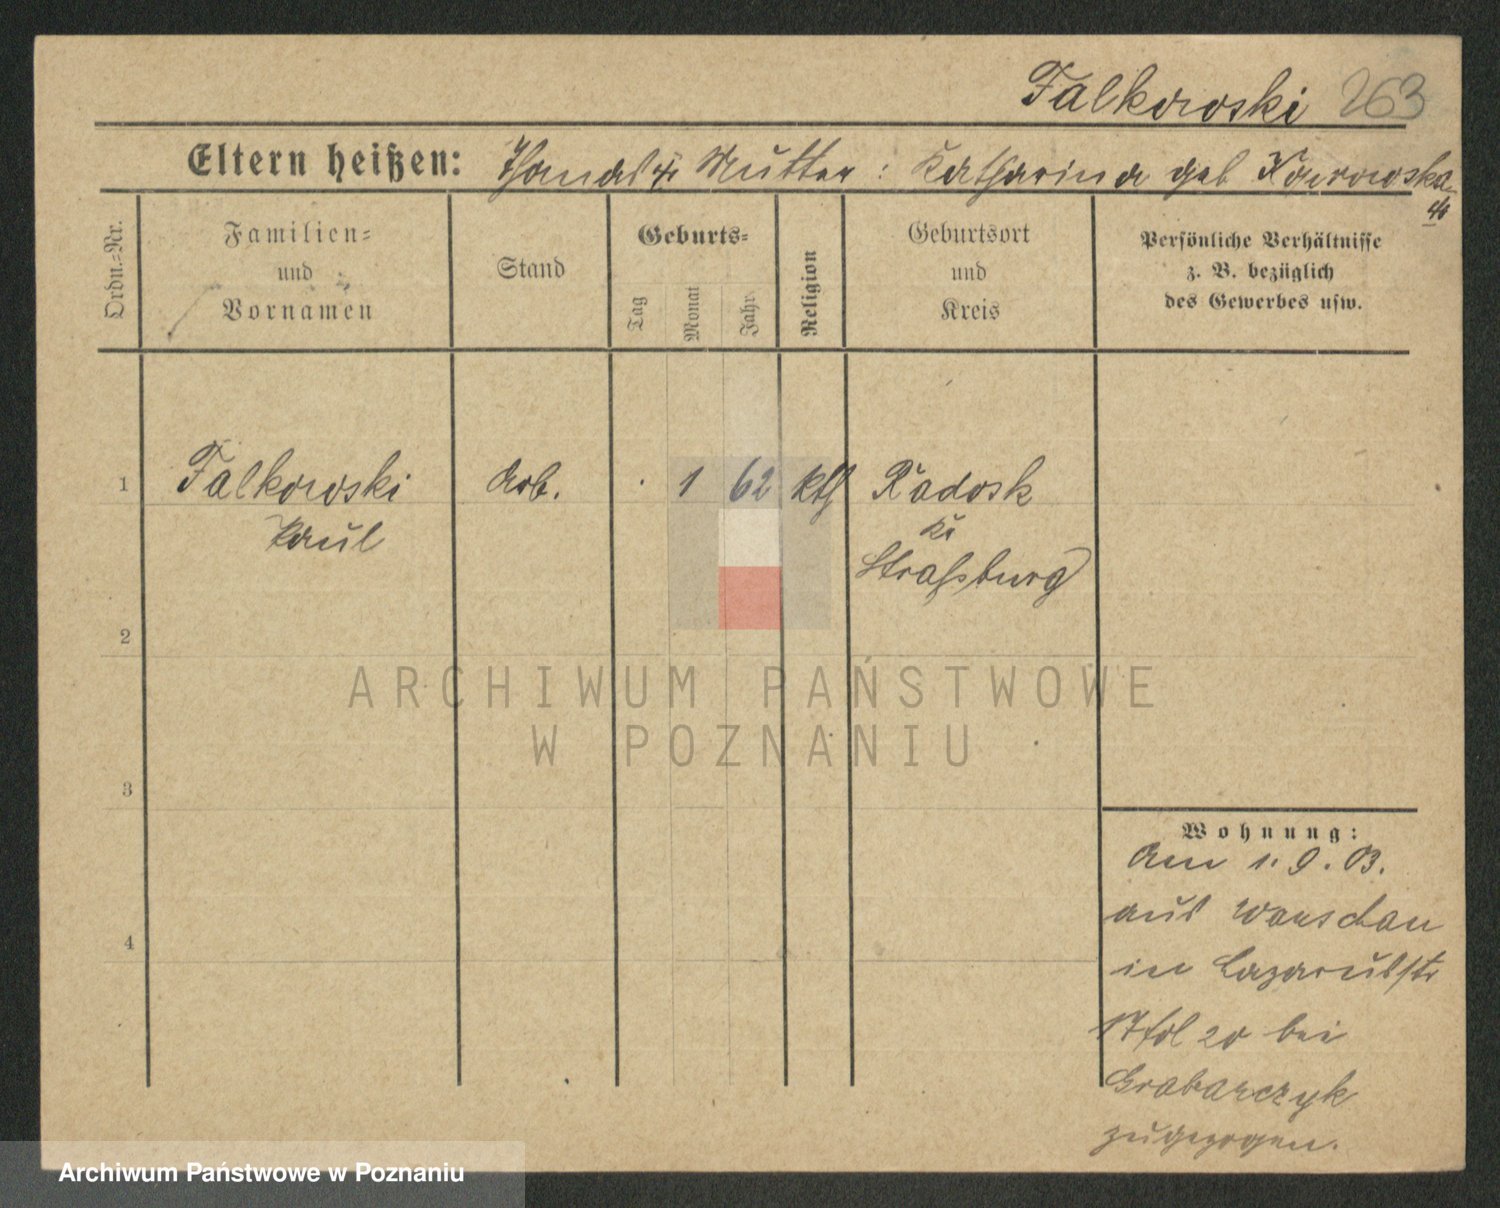 Falkowski 263
Eltern heißen: Thomas + Mutter: Katharina geb
+
Ordn.-Nr.
Familien-
und
Vornamen
Stand
Geburts-
Tag
Monat
Jahr
Religion
Geburtsort
und
Kreis
Persönliche Verhältnisse
z. B. bezüglich
des Gewerbes usw.
1 Falkowski Arb. 1 62 kth Radosk
Paul Kr
Straßburg
2
3
4
ARCHIWUM PAŃSTWOWE
W POZNANIU
Wohnung:
Am 1.9.03.
aus Warschau
in Lazarusstr
17 fol 20 bei
Grabarczyk
zugezogen.
Archiwum Państwowe w Poznaniu